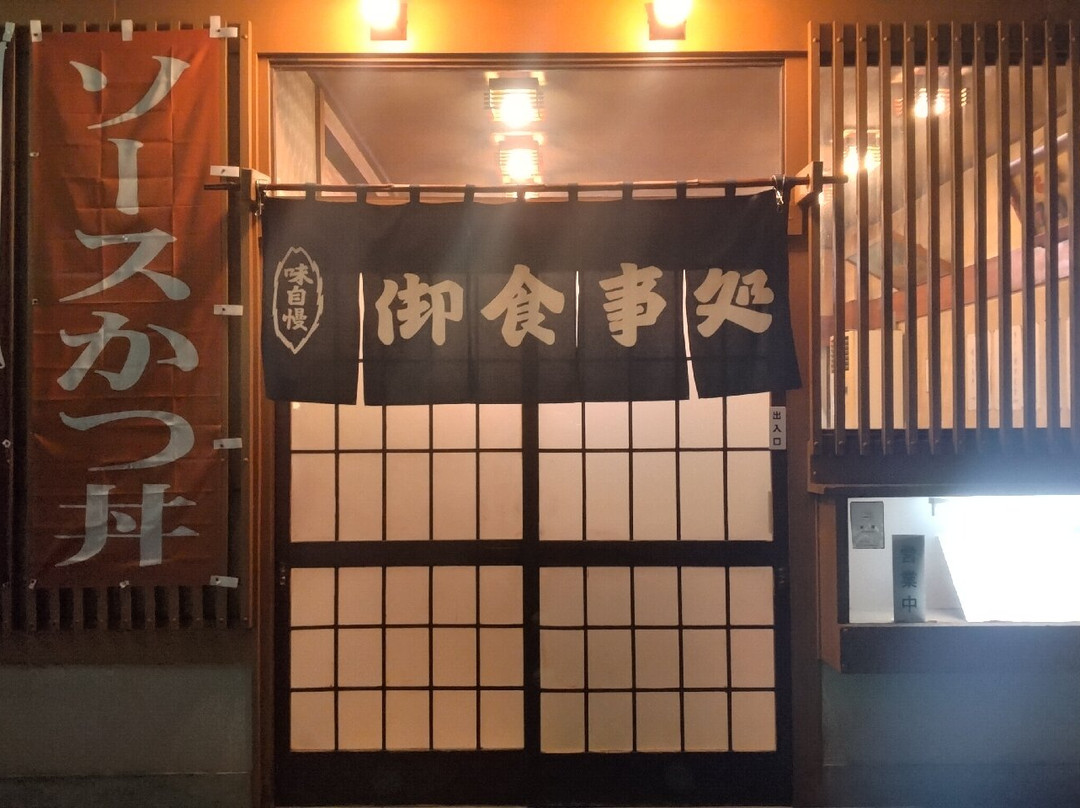 ソースかつ丼
味自慢
御食事処
出入口
営業中